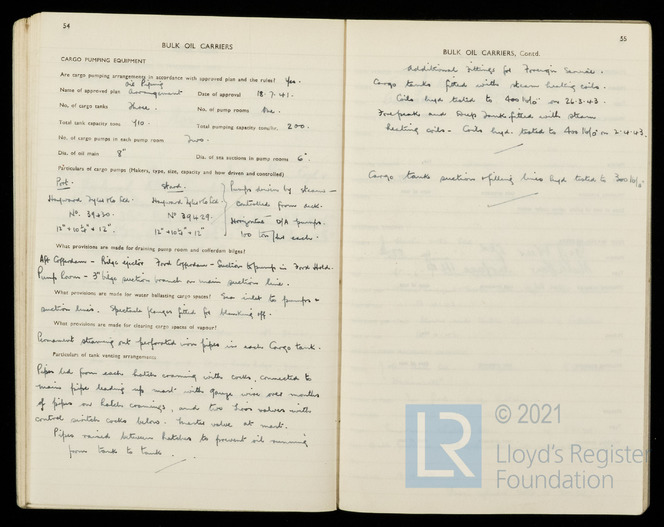 54
BULK OIL CARRIERS
CARGO PUMPING EQUIPMENT
Are cargo pumping arrangements in accordance with approved plan and the rules? Yes.
Name of approved plan Oil Piping Arrangement Date of approval 18.7.41.
No. of cargo tanks Three. No. of pump rooms One.
Total tank capacity tons. 410. Total pumping capacity tons/hr. 200.
No. of cargo pumps in each pump room Two.
Dia. of oil main 8" Dia. of sea suctions in pump rooms 6".
Particulars of cargo pumps (Makers, type, size, capacity and how driven and controlled)
Port. Starb. Pumps driven by steam -
Hayward Tyler & Co Ltd. Hayward Tyler & Co Ltd. Controlled from deck.
No. 39430. No 39429. Horizontal D/A pumps.
12" + 10½" + 12". 12" + 10½" + 12" 100 tons/hr each.
What provisions are made for draining pump room and cofferdam bilges?
Aft Cofferdam - Bilge ejector Ford Cofferdam - Suction to pump in Ford Hold.
Pump Room - 3" bilge suction branch on main suction line.
What provisions are made for water ballasting cargo spaces? Sea inlet to pumps &
suction lines. Spectacle flanges fitted for blanking off.
What provisions are made for clearing cargo spaces of vapour?
Permanent steaming out perforated iron pipes in each Cargo tank.
Particulars of tank venting arrangements
Pipes led from each hatch coaming with cocks, connected to
main pipe leading up mast with gauze wire over mouths
of pipes on hatch coamings, and two valves with
control switch cocks below. valve at mast.
Pipes raised between hatches to prevent oil running
from tank to tank.
55
BULK OIL CARRIERS, Contd.
Additional fittings for Foreign Service.
Cargo tanks fitted with steam heating coils.
Coils hyd. tested to 400 lb/□" on 26.3.43.
Forepeaks and Deep Tank fitted with steam
heating coils - Coils hyd. tested to 400 lb/□" on 2.4.43.
Cargo tanks suction & filling lines hyd tested to 300 lb/□.
LR
© 2021
Lloyd's Register
Foundation